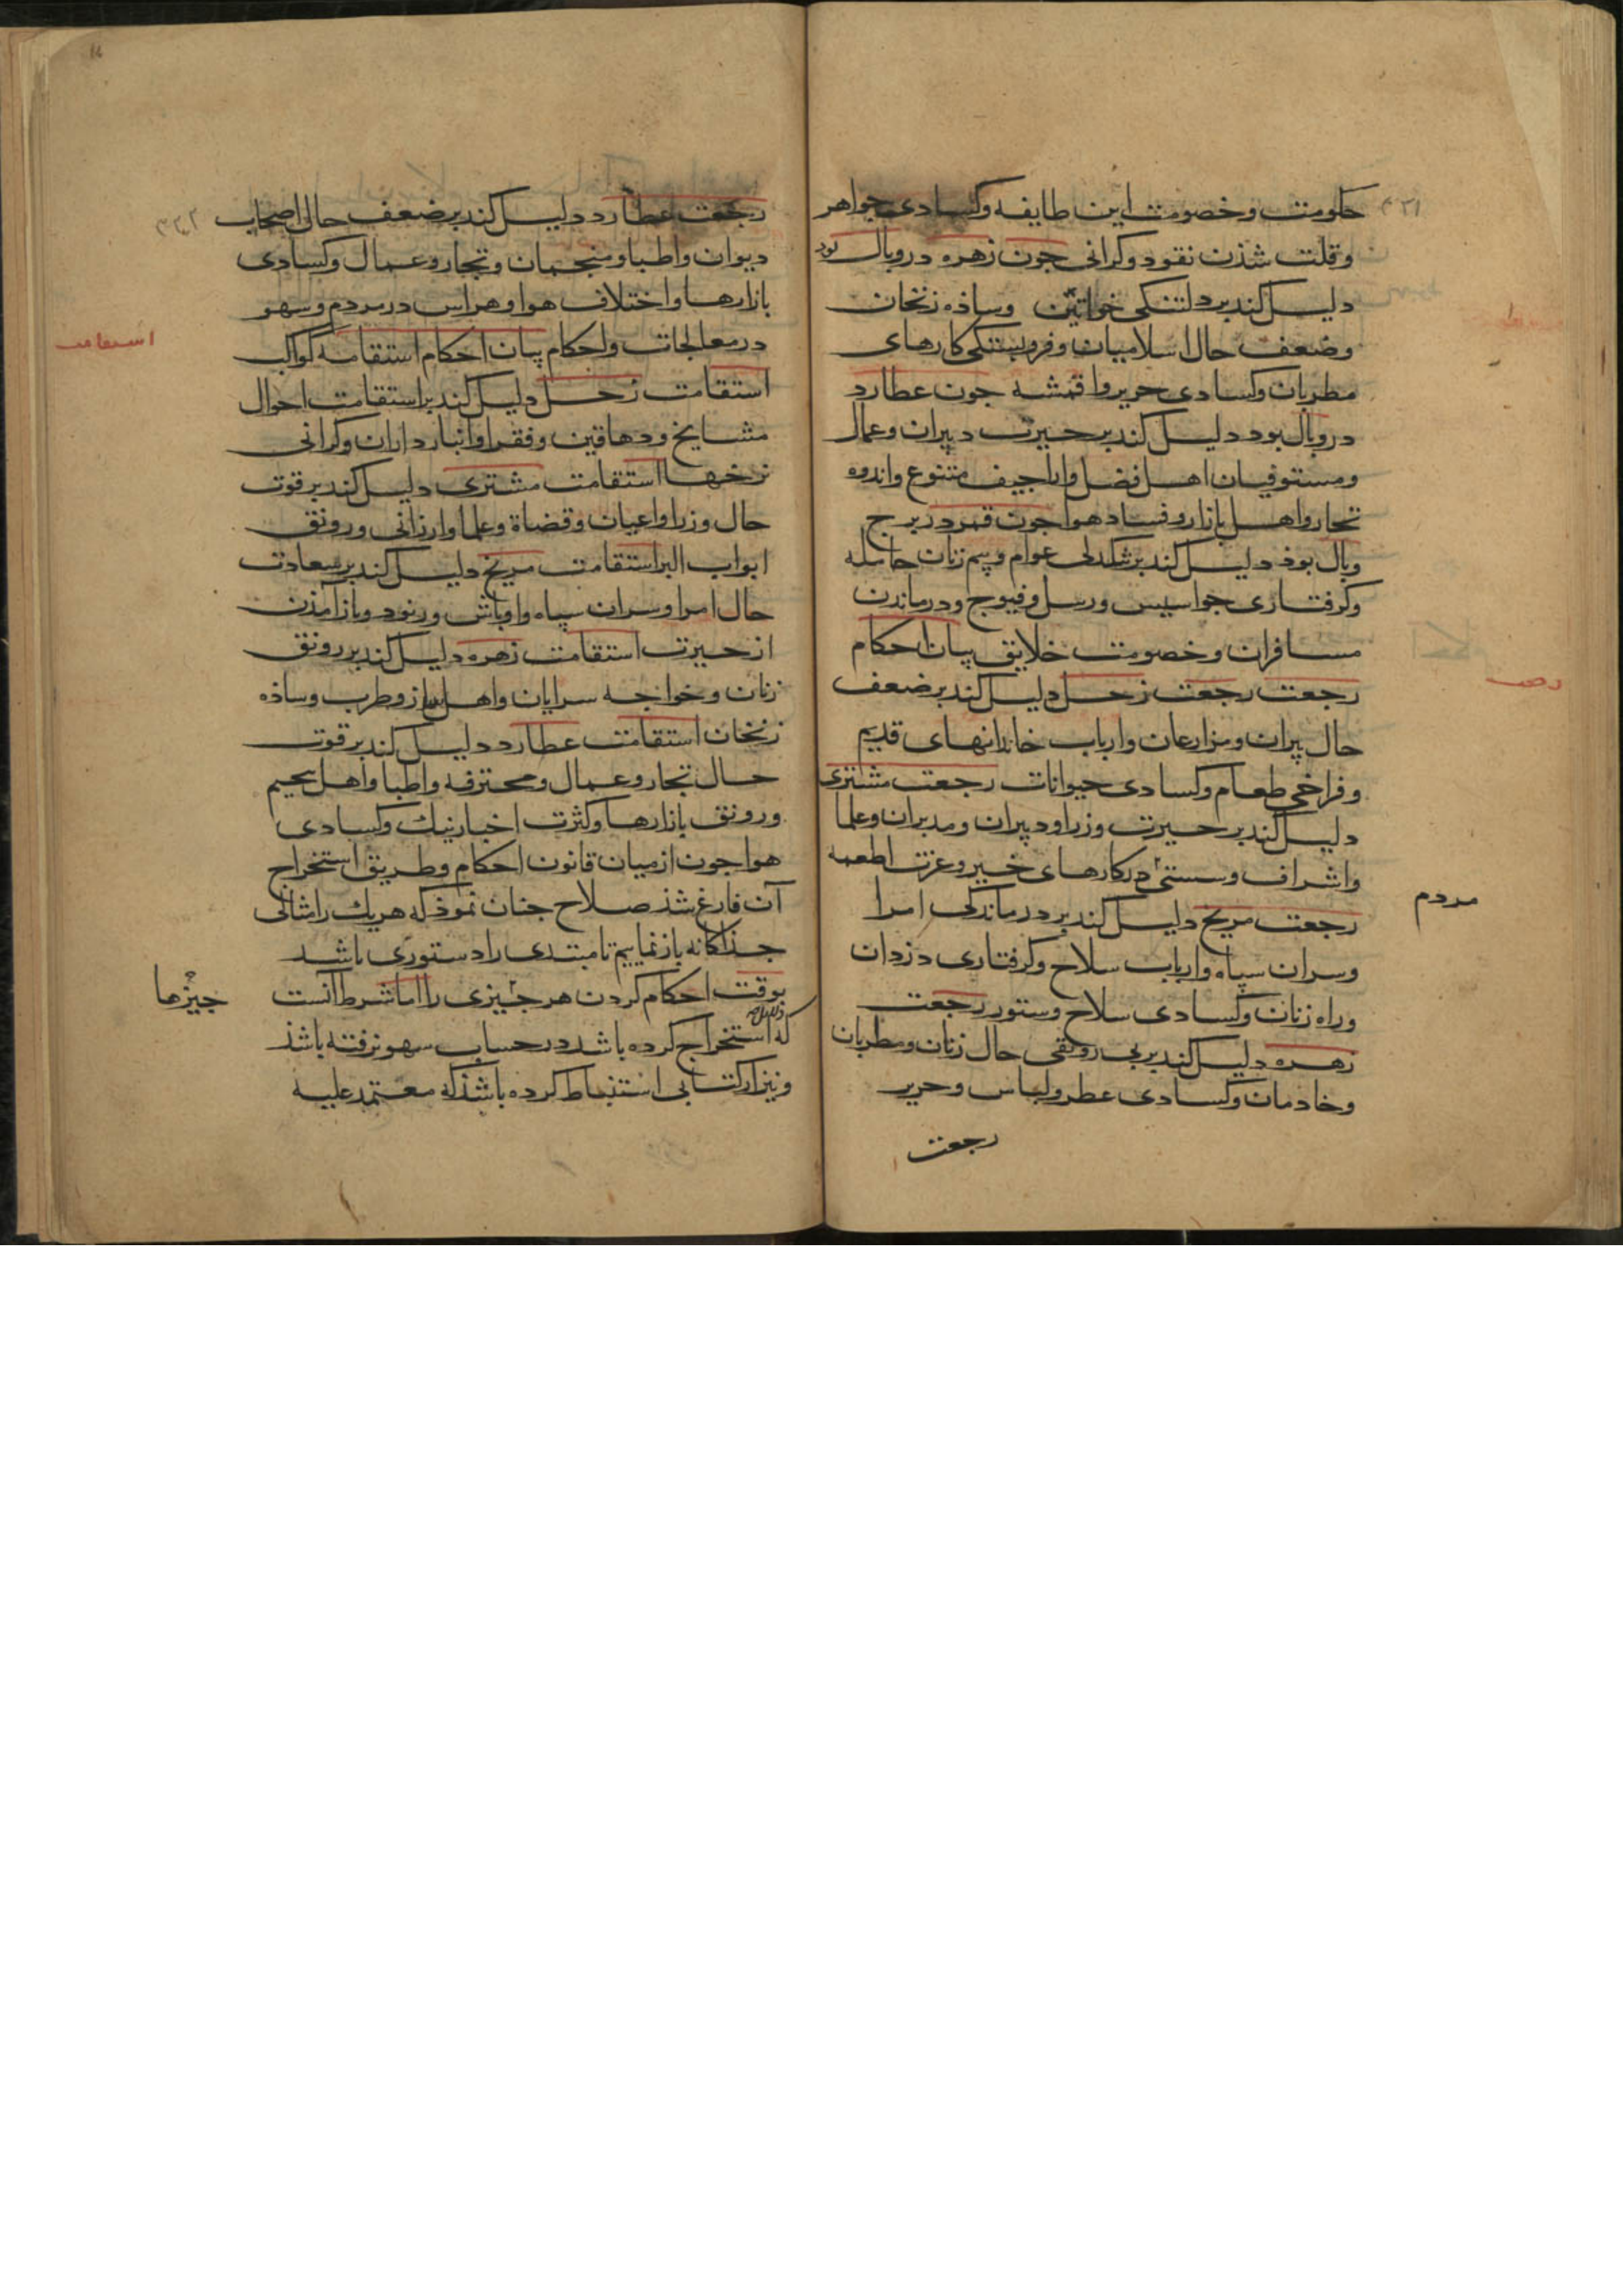 حکومت و خصومت این طایفه و کسادی جواهر
و قلت شذن نقود و کرانی جون زهره در وبال بود
دلیل کند بر دلتنکی خواتین وساذه زنخان
وضعف حال اسلامیان و فروبستکی کارهای
مطربان وکسادی حریر واقمشه جون عطارد
در وبال بود دلیل کند بر حیرت دبیران وعمال
ومستوفیان اهل فضل واراجیف متنوع واندوه
تجار واهل بازار وفساد هوا جون قمر در برج
وبال بوذ دلیل کند بر تنکدلی عوام وبیم زنان حامله
وکرفتاری جواسیس ورسل وفیوج ودرماندن
مسافران وخصومت خلایق بیان احکام
رجعت رجعت زحل دلیل کند بر ضعف
حال پیران ومزارعان وارباب خاندانهای قدیم
وفراخی طعام وکسادی حیوانات رجعت مشتری
دلیل کند بر حیرت وزرا ودبیران ومدبران وعلما
واشراف وسستی مردم در کارهای خیر وعزت اطعمه
رجعت مریخ دلیل کند بر درماندکی امرا
وسران سپاه وارباب سلاح وکرفتاری دزدان
وراه زنان وکسادی سلاح وستور رجعت
زهره دلیل کند بر بی رونقی حال زنان ومطربان
وخادمان وکسادی عطر ولباس وحریر
رجعت
۳۳۱
مردم
رجعت عطارد دلیل کند بر ضعف حال اصحاب
دیوان واطبا ومنجمان وتجار وعمال وکسادی
بازارها واختلاف هوا وهراس در مردم وسهو
در معالجات واحکام بیان احکام استقامه کواکب
استقامت زحل دلیل کند بر استقامت احوال
مشایخ ودهاقین وفقرا وانبارداران وکرانی
نرخها استقامت مشتری دلیل کند بر قوت
حال وزرا واعیان وقضاة وعلما وارزانی ورونق
ابواب البر استقامت مریخ دلیل کند بر سعادت
حال امرا وسران سپاه واوباش ورنود وبازآمذن
از حیرت استقامت زهره دلیل کند بر رونق
زنان وخواجه سرایان واهل ساز وطرب وساذه
زنخان استقامت عطارد دلیل کند بر قوت
حال تجار وعمال ومحترفه واطبا واهل تنجیم
ورونق بازارها وکثرت اخبار نیک وکسادی
هوا جون از میان قانون احکام وطریق استخراج
آن فارغ شذ صلاح جنان نموذ که هریک را مثالی
جذاکانه باز نماییم تا مبتدی را دستوری باشد
بوقت احکام کردن هر جیزی را اما شرط آنست
که استخراج کرده باشد در حساب سهو نرفته باشذ
ونیز از کتابی استنباط کرده باشذ که معتمد علیه
استقامت
جیزها